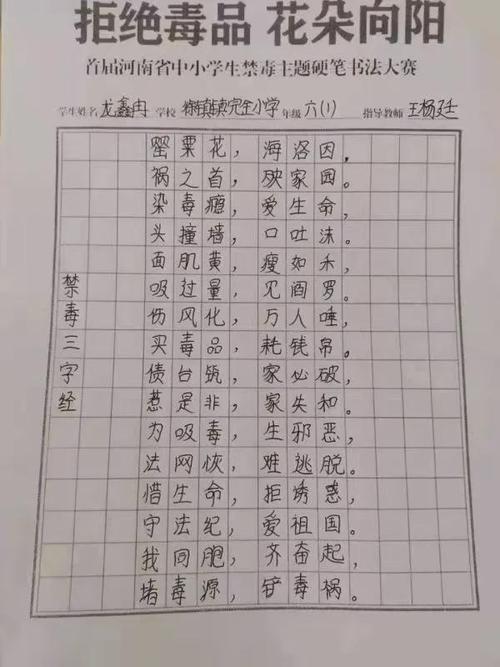 拒绝毒品 花朵向阳
首届河南省中小学生禁毒主题硬笔书法大赛
学生姓名 龙鑫冉 学校 完全小学 年级 六(1) 指导教师 王杨廷
禁毒三字经
罂粟花，海洛因，
祸之首，殃家园。
染毒瘾，爱生命，
头撞墙，口吐沫。
面肌黄，瘦如禾，
吸过量，见阎罗。
伤风化，万人唾，
买毒品，耗钱帛。
债台筑，家必破，
惹是非，家失和。
为吸毒，生邪恶，
法网恢，难逃脱。
惜生命，拒诱惑，
守法纪，爱祖国。
我同胞，齐奋起，
堵毒源，铲毒祸。